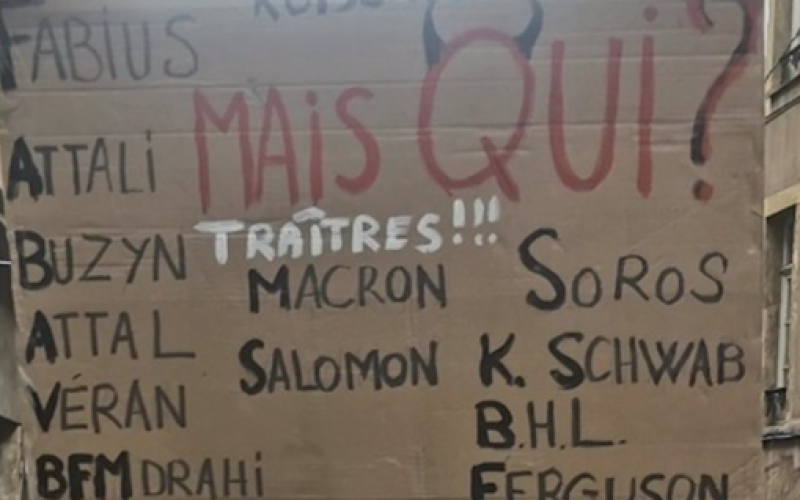 FABIUS
MAIS QUI?
ATTALI
TRAÎTRES!!!
BUZYN
MACRON
SOROS
ATTAL
SALOMON
K. SCHWAB
VÉRAN
B.H.L.
BFM DRAHI
FERGUSON